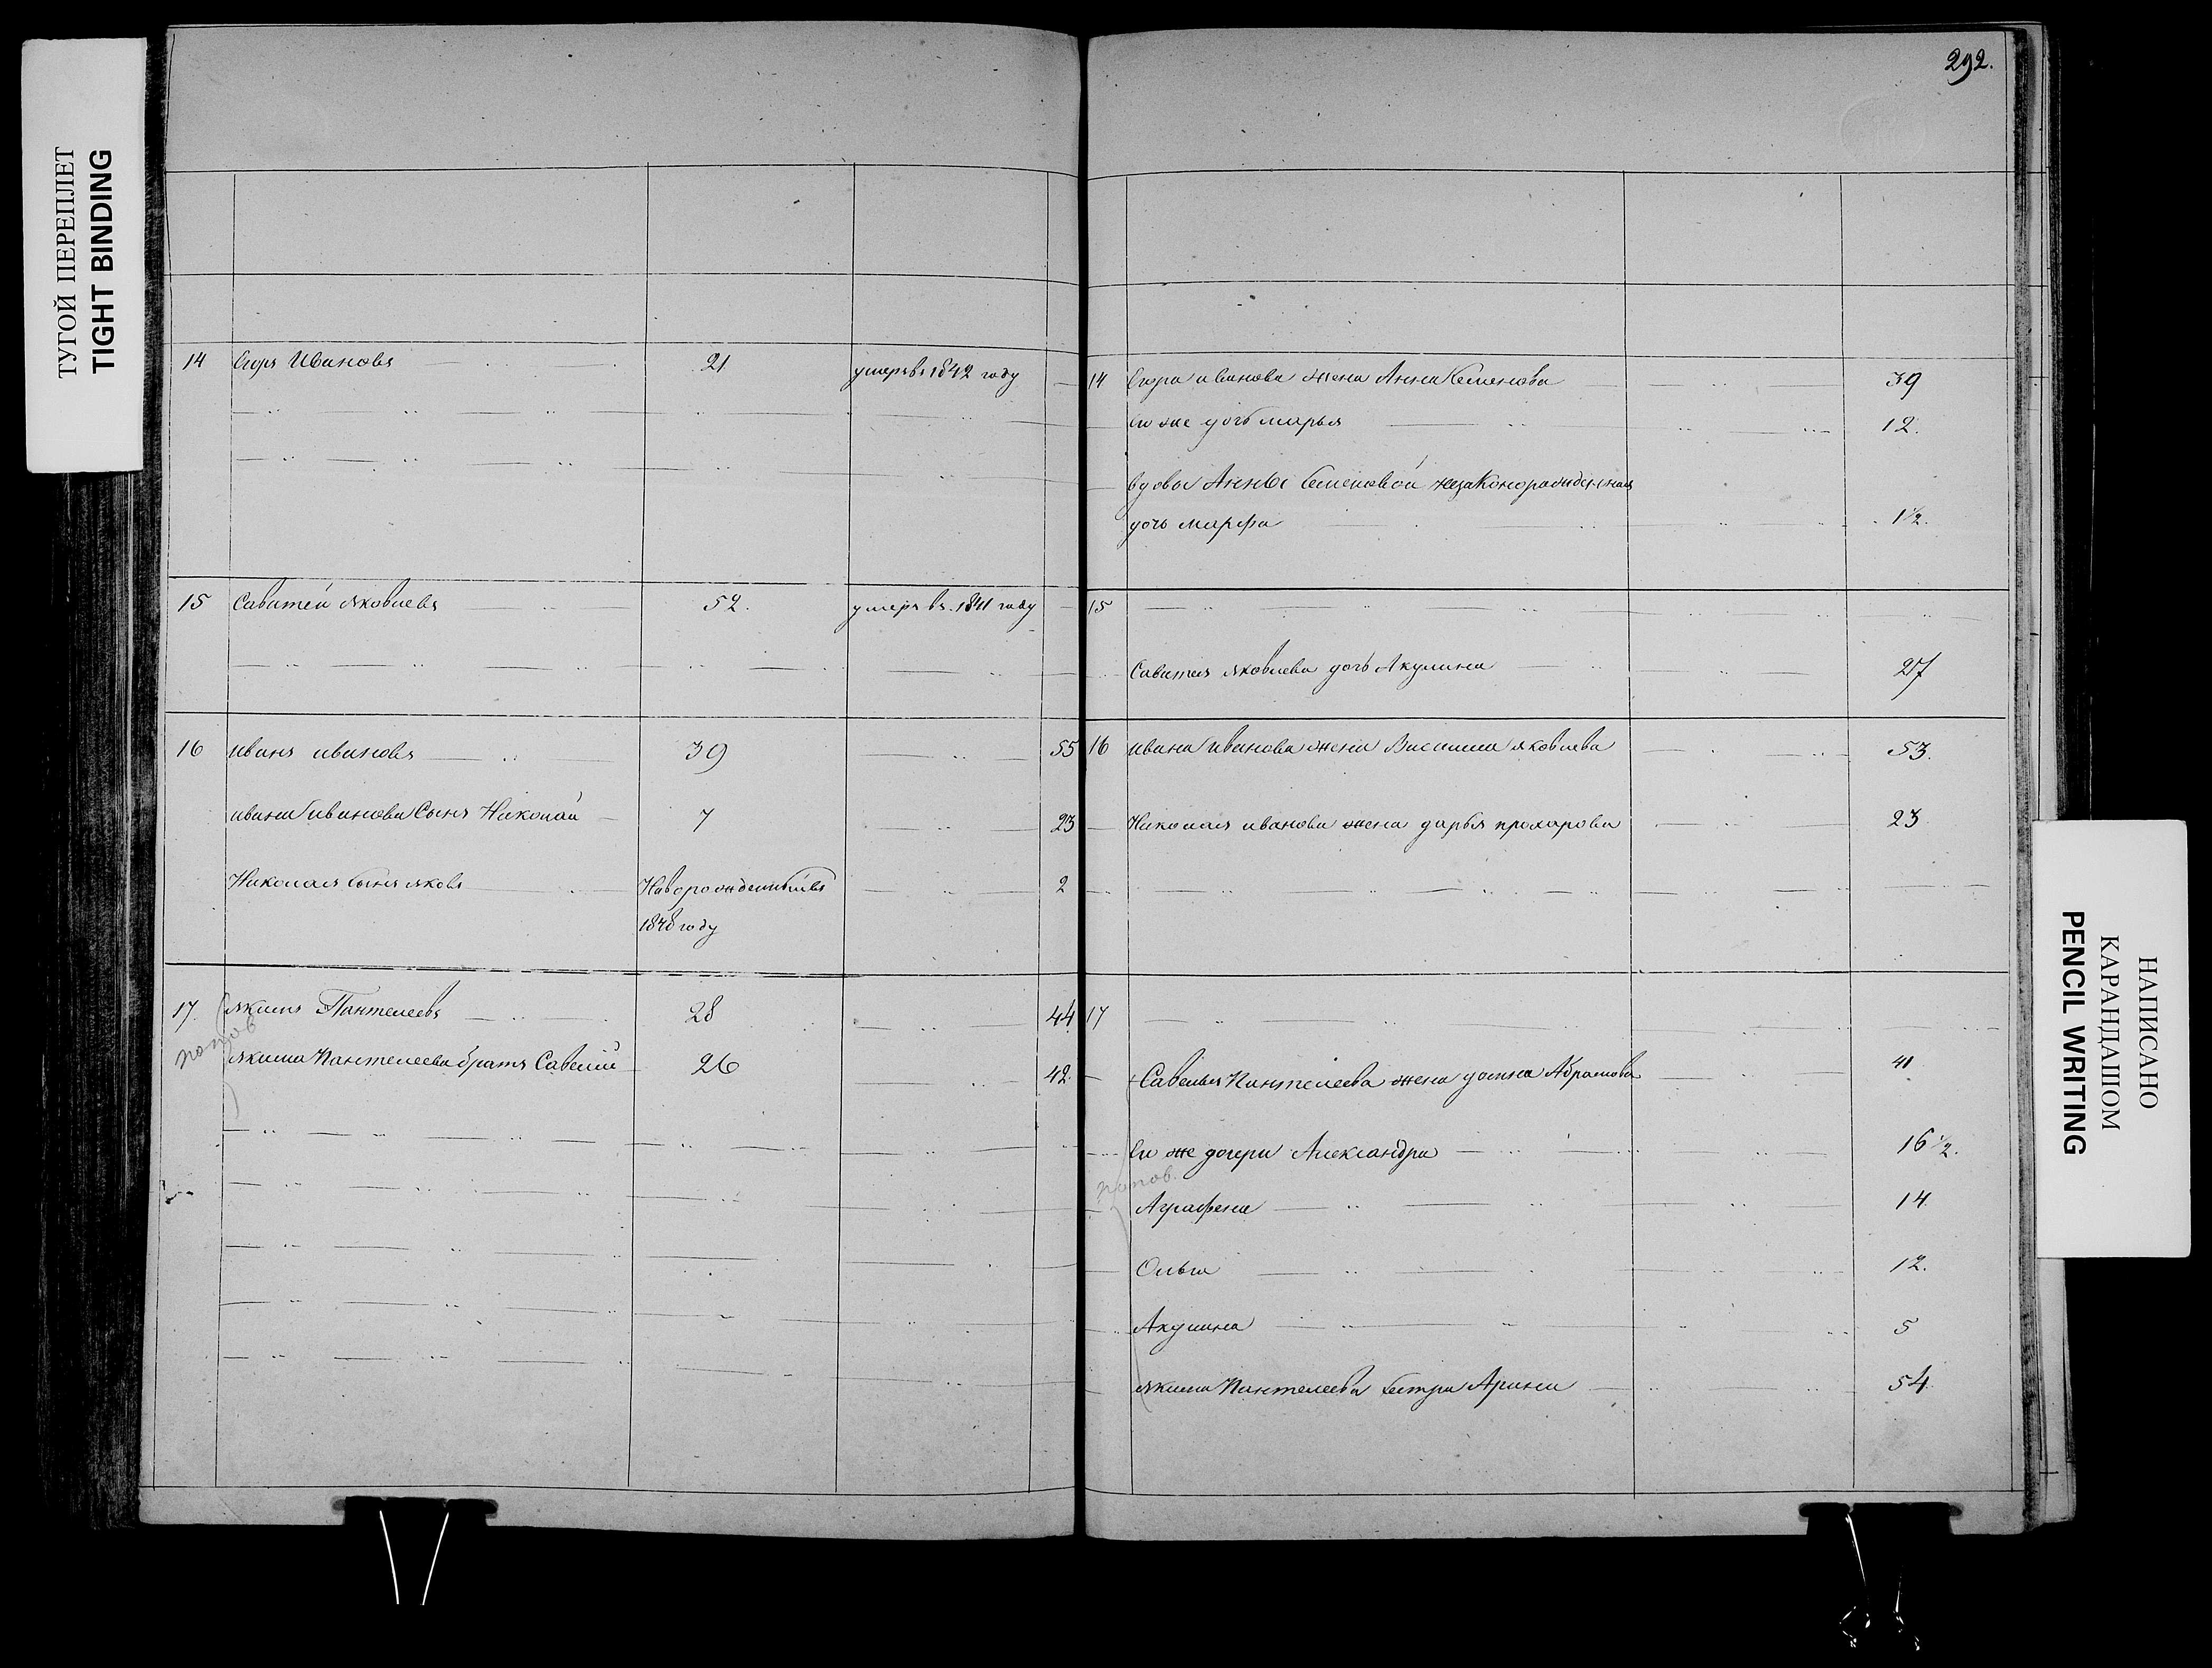 292.
ТУГОЙ ПЕРЕПЛЕТ
TIGHT BINDING
14 Егоръ Ивановъ 21 умеръ въ 1842 году
15 Саватей яковлевъ 52. умеръ въ 1841 году
16 иванъ ивановъ 39 55
ивана иванова Сынъ Николай 7 23
Николая Сынъ яковъ Новорожденный въ 2
1848 году
17. якимъ Пантелеевъ 28 44
попов
якима Пантелеева братъ Савелий 26 42.
14 Егора иванова жена Анна Семенова 39
Его же дочь марья 12.
вдовы Анны Семеновой незаконорожденная
дочь марфа 1½.
15
Саватея яковлева дочь Акулина 27
16 ивана иванова жена Василиса яковлева 53.
Николая иванова жена дарья прохарова 23
17
Савелья Пантелеева жена домна Абрамова 41
Его же дочери Александра 16½.
попов.
Аграфена 14
Ольга 12.
Акулина 5
якима Пантелеева Сестра Арина 54
НАПИСАНО
КАРАНДАШОМ
PENCIL WRITING